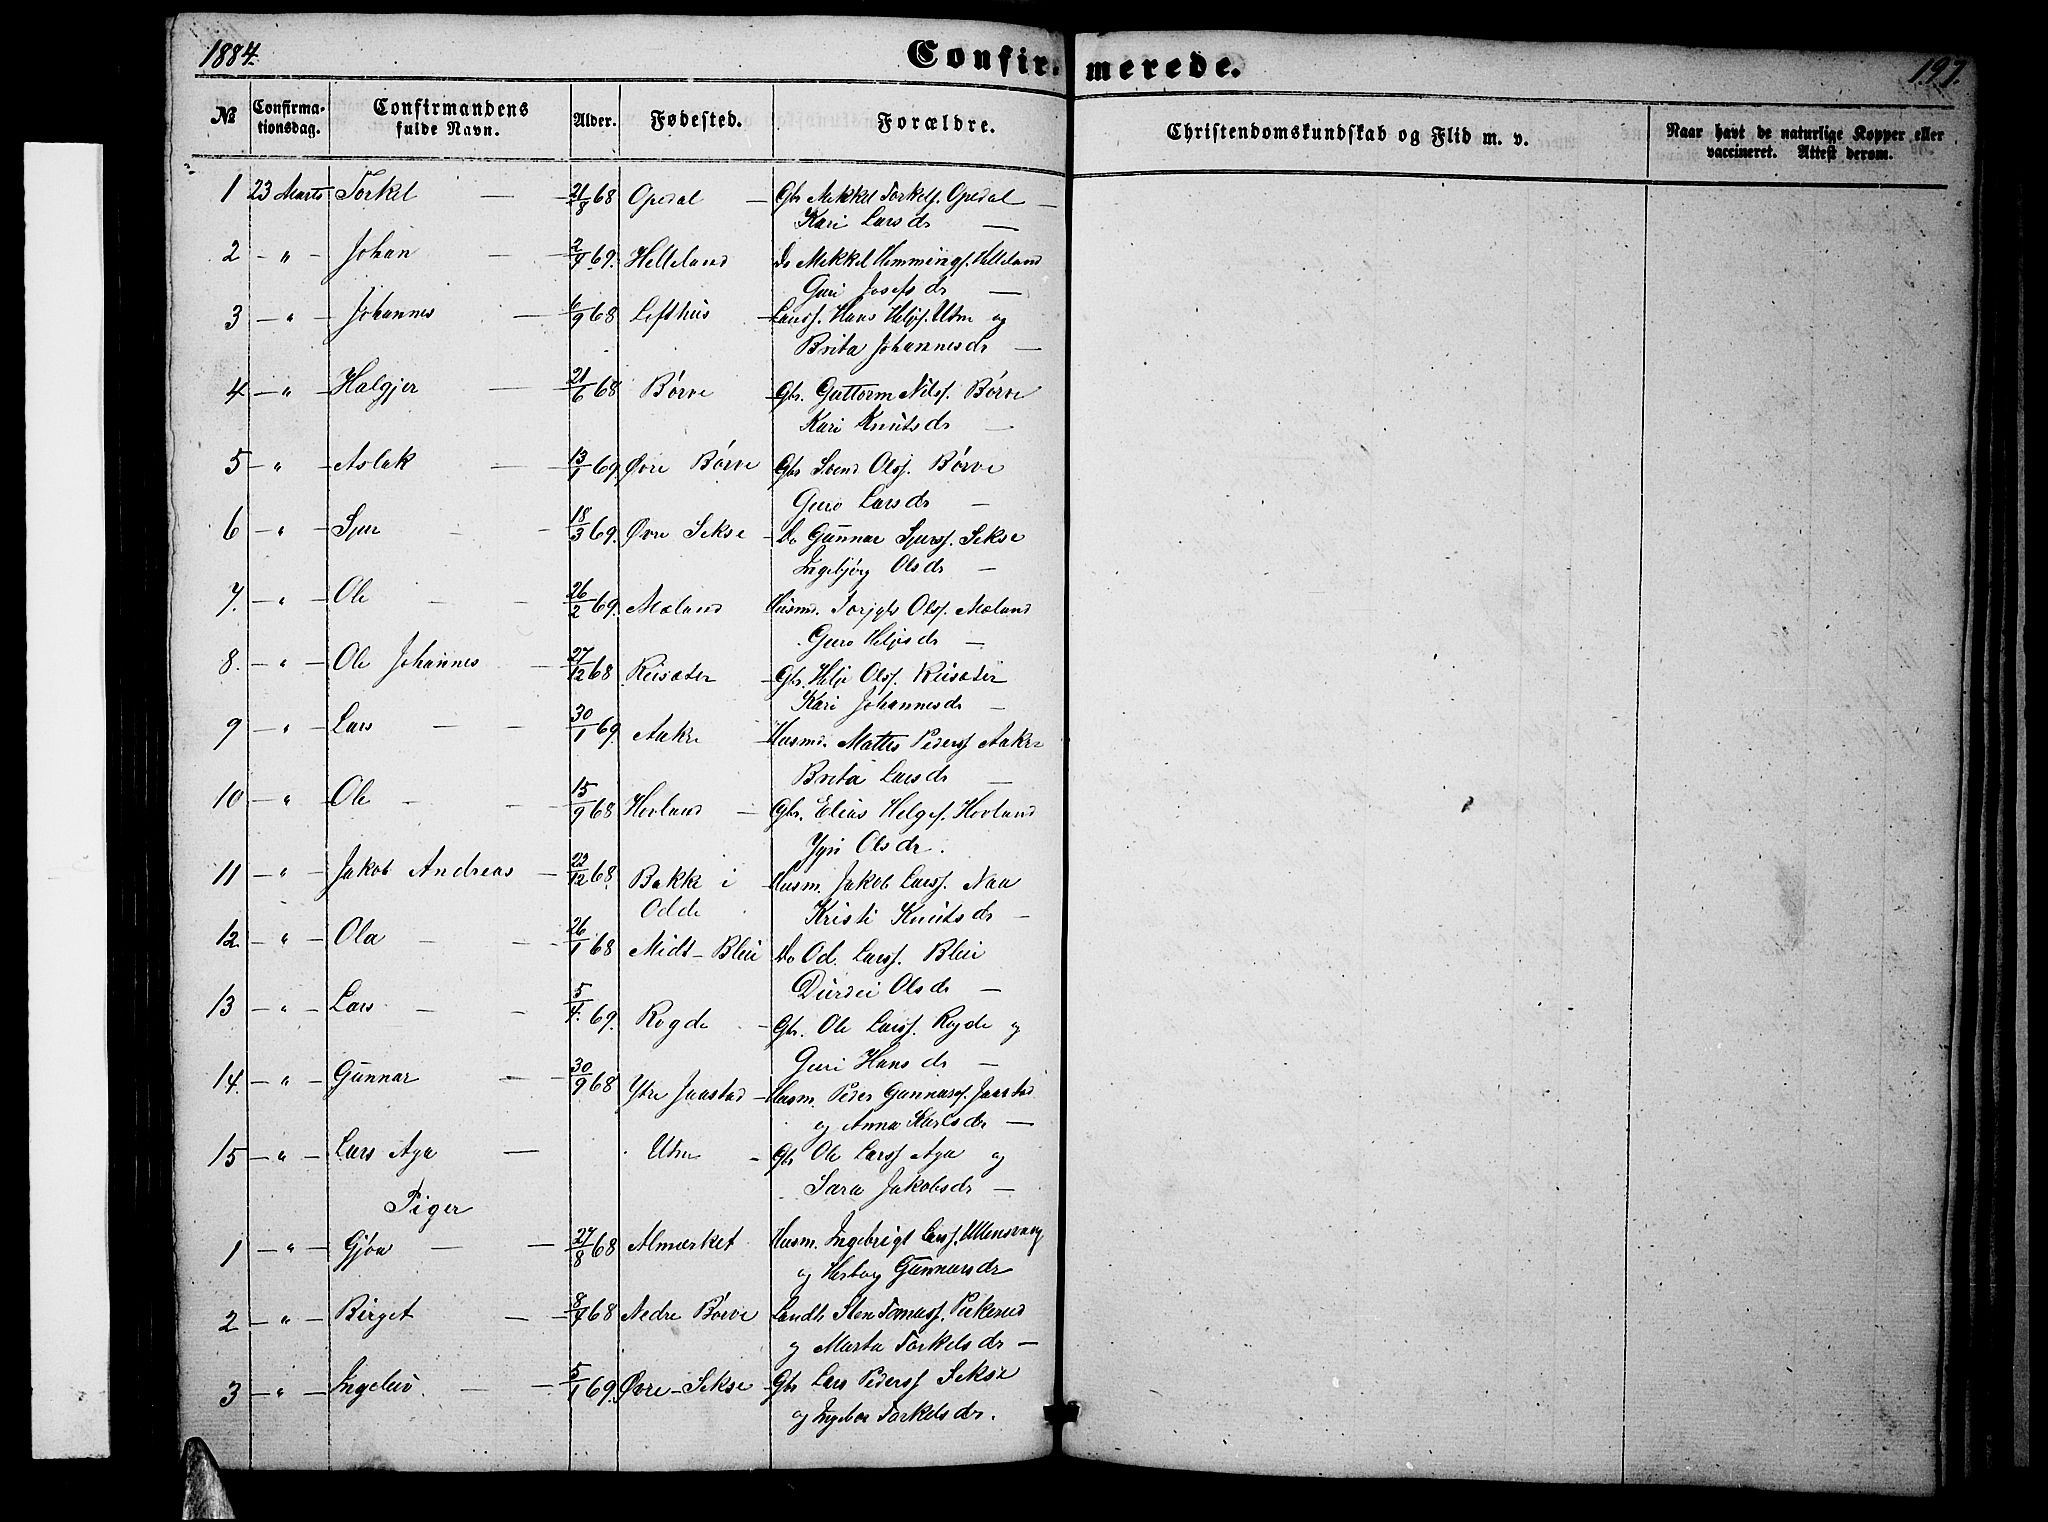 1884.
Confir-merede.
197.
№ Confirma-tionsdag. Confirmandens fulde Navn. Alder. Fødested. Forældre. Christendomskundskab og Flid m. v. Naar havt de naturlige Kopper eller vaccineret. Attest derom.
1 23 Marts Torkel — 21/8 68 Opedal — Gbr Mekkel Torkelss. Opedal —
Kari Larsdr —
2 - " - Johan 2/9 69. Helleland do Mekkel Hemmings. Helleland
Guri Josefsdr —
3 - " - Johannes — 6/9 68 Lofthus — Hans Utne og
Brita Johannesdr —
4 - " - Halgjer — 21/6 68 Børve Gbr. Guttorm Nilss. Børve
Kari Knutsdr —
5 - " - Aslak — 13/1 69. Øvre Børve Gbr Svend Olss. Børve
Guro Larsdr —
6 - " - Sjur — 18/3 69. Øvre Sekse Do Gunnar Sjurss. Sekse
Ingebjørg Olsdr —
7. - " - Ole — 26/2 69. Mæland Husmd. Olss. Mæland
Guro Heljesdr —
8. - " - Ole Johannes — 27/12 68 Reisæter Gbr. Helje Olss. Reisæter
Kari Johannesdr —
9 - " - Lars — 30/1 69. Aakre Husmd. Mattis Pederss Aakre
Brita Larsdr —
10 - " - Ole — 15/9 68 Hovland — Gbr. Elias Helges. Hovland
Olsdr.
11 - " - Jakob Andreas — 22/12 68. Bakke i Husm. Jakob Larss. Naa
Odde Kristi Knutsdr —
12. - " - Ola — 26/1 68 Midt-Bleie Do Od. Larss. Bleie
Durdei Olsdr —
13 - " - Lars — 5/4. 69. Rogde Gbr. Ole Larss. Rogde og
Guri Hansdr —
14. - " - Gunnar — 30/9 68 Ytre Jaastad — Husm. Peder Gunnarss. Jaastad
og Anna Karlsdr —
15 - " - Lars Aga — Utne — Gbr Ole Larss Aga og
Sara Jakobsdr —
Piger
1 - " - Gjøa — 27/8 68 Almærket Husm. Ingebrigt Larss. Ullensvang
og Herborg Gunnarsdr
2 - " - Birget — 68 Nedre Børve Sten
og Marta Torkelsdr —
3 - " - — 5/1 69. Øvre-Sekse Gbr Lars Pederss Sekse
og Ingebor Torkelsdr.